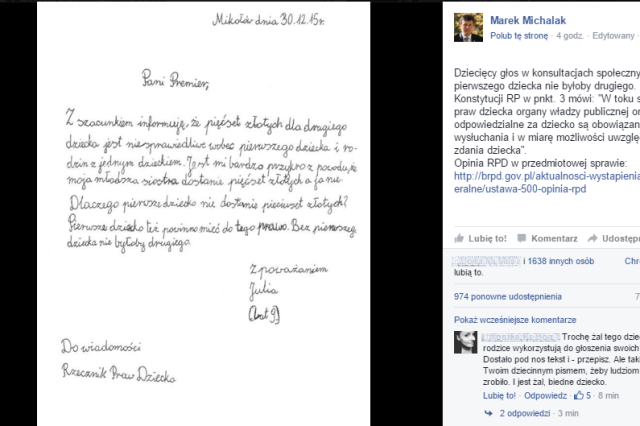 Mikołów dnia 30.12.15r.
Pani Premier,
Z szacunkiem informuję, że pięćset złotych dla drugiego
dziecka jest niesprawiedliwe wobec pierwszego dziecka i ro-
dzin z jednym dzieckiem. Jest mi bardzo przykro z powodu, że
moja młodsza siostra dostanie pięćset złotych a ja nie.
Dlaczego pierwsze dziecko nie dostanie pięciuset złotych?
Pierwsze dziecko też powinno mieć do tego prawo. Bez pierwszego
dziecka nie byłoby drugiego.
Z poważaniem
Julia
(lat 9)
Do wiadomości
Rzecznik Praw Dziecka
Marek Michalak
Polub tę stronę · 4 godz. · Edytowany ·
Dziecięcy głos w konsultacjach społeczny
pierwszego dziecka nie byłoby drugiego.
Konstytucji RP w pnkt. 3 mówi: "W toku s
praw dziecka organy władzy publicznej or
odpowiedzialne za dziecko są obowiązan
wysłuchania i w miarę możliwości uwzglę
zdania dziecka".
Opinia RPD w przedmiotowej sprawie:
http://brpd.gov.pl/aktualnosci-wystapienia
eralne/ustawa-500-opinia-rpd
Lubię to! Komentarz Udostępn
i 1638 innych osób Chr
lubią to.
974 ponowne udostępnienia 7
Pokaż wcześniejsze komentarze
Trochę żal tego dziec
rodzice wykorzystują do głoszenia swoich
Dostało pod nos tekst i - przepisz. Ale taki
Twoim dziecinnym pismem, żeby ludziom
zrobiło. I jest żal, biedne dziecko.
Lubię to! · Odpowiedz · 5 · 8 min
2 odpowiedzi · 3 min